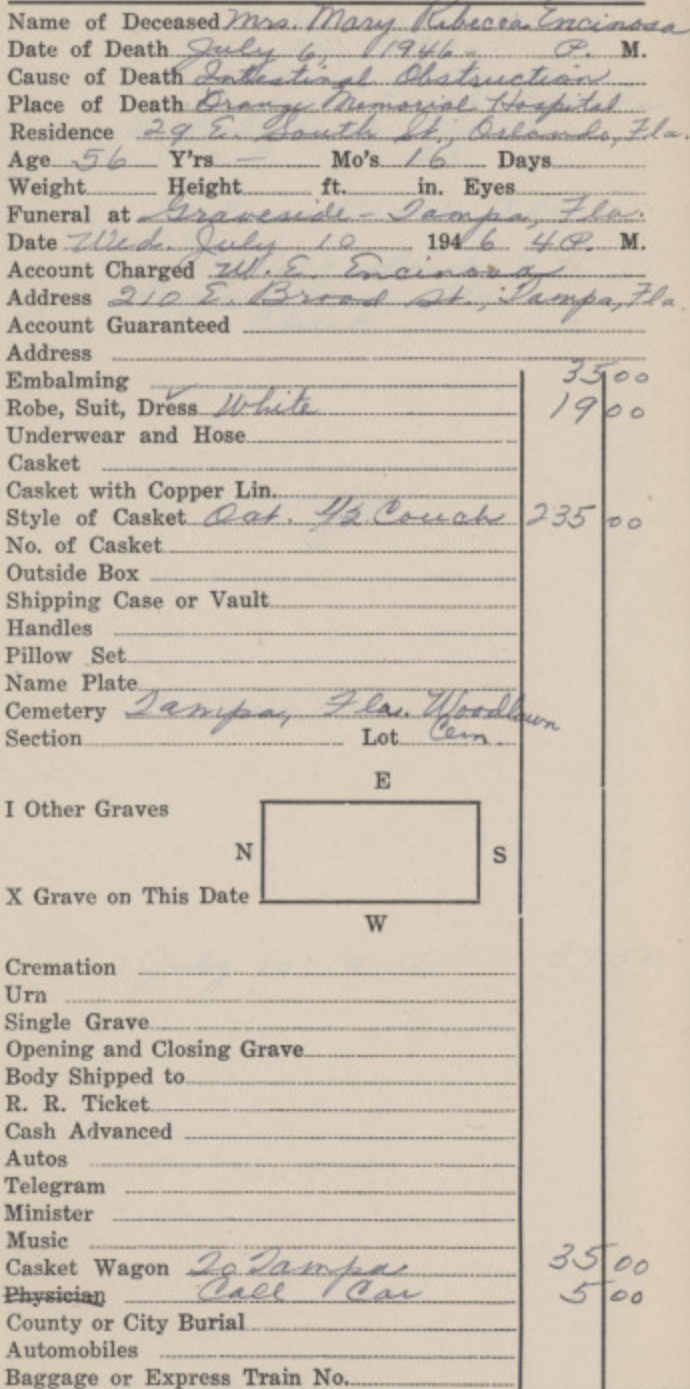 Name of Deceased Mrs. Mary Rebecca Encinosa
Date of Death July 6, 1946 - P. M.
Cause of Death Intestinal Obstruction
Place of Death Orange Memorial Hospital
Residence 29 E. South St., Orlando, Fla.
Age 56 Y'rs - Mo's 16 Days
Weight Height ft. in. Eyes
Funeral at Graveside - Tampa, Fla.
Date Wed. July 10 1946 4 P. M.
Account Charged W. E. Encinosa
Address 210 E. Broad St., Tampa, Fla.
Account Guaranteed
Address
Embalming 35 00
Robe, Suit, Dress White 19 00
Underwear and Hose
Casket
Casket with Copper Lin.
Style of Casket Oct. 1/2 Couch 235 00
No. of Casket
Outside Box
Shipping Case or Vault
Handles
Pillow Set
Name Plate
Cemetery Tampa, Fla. Woodlawn
Section Lot Cem
E
I Other Graves
N S
X Grave on This Date
W
Cremation
Urn
Single Grave
Opening and Closing Grave
Body Shipped to
R. R. Ticket
Cash Advanced
Autos
Telegram
Minister
Music
Casket Wagon To Tampa 35 00
Physician Call Car 5 00
County or City Burial
Automobiles
Baggage or Express Train No.